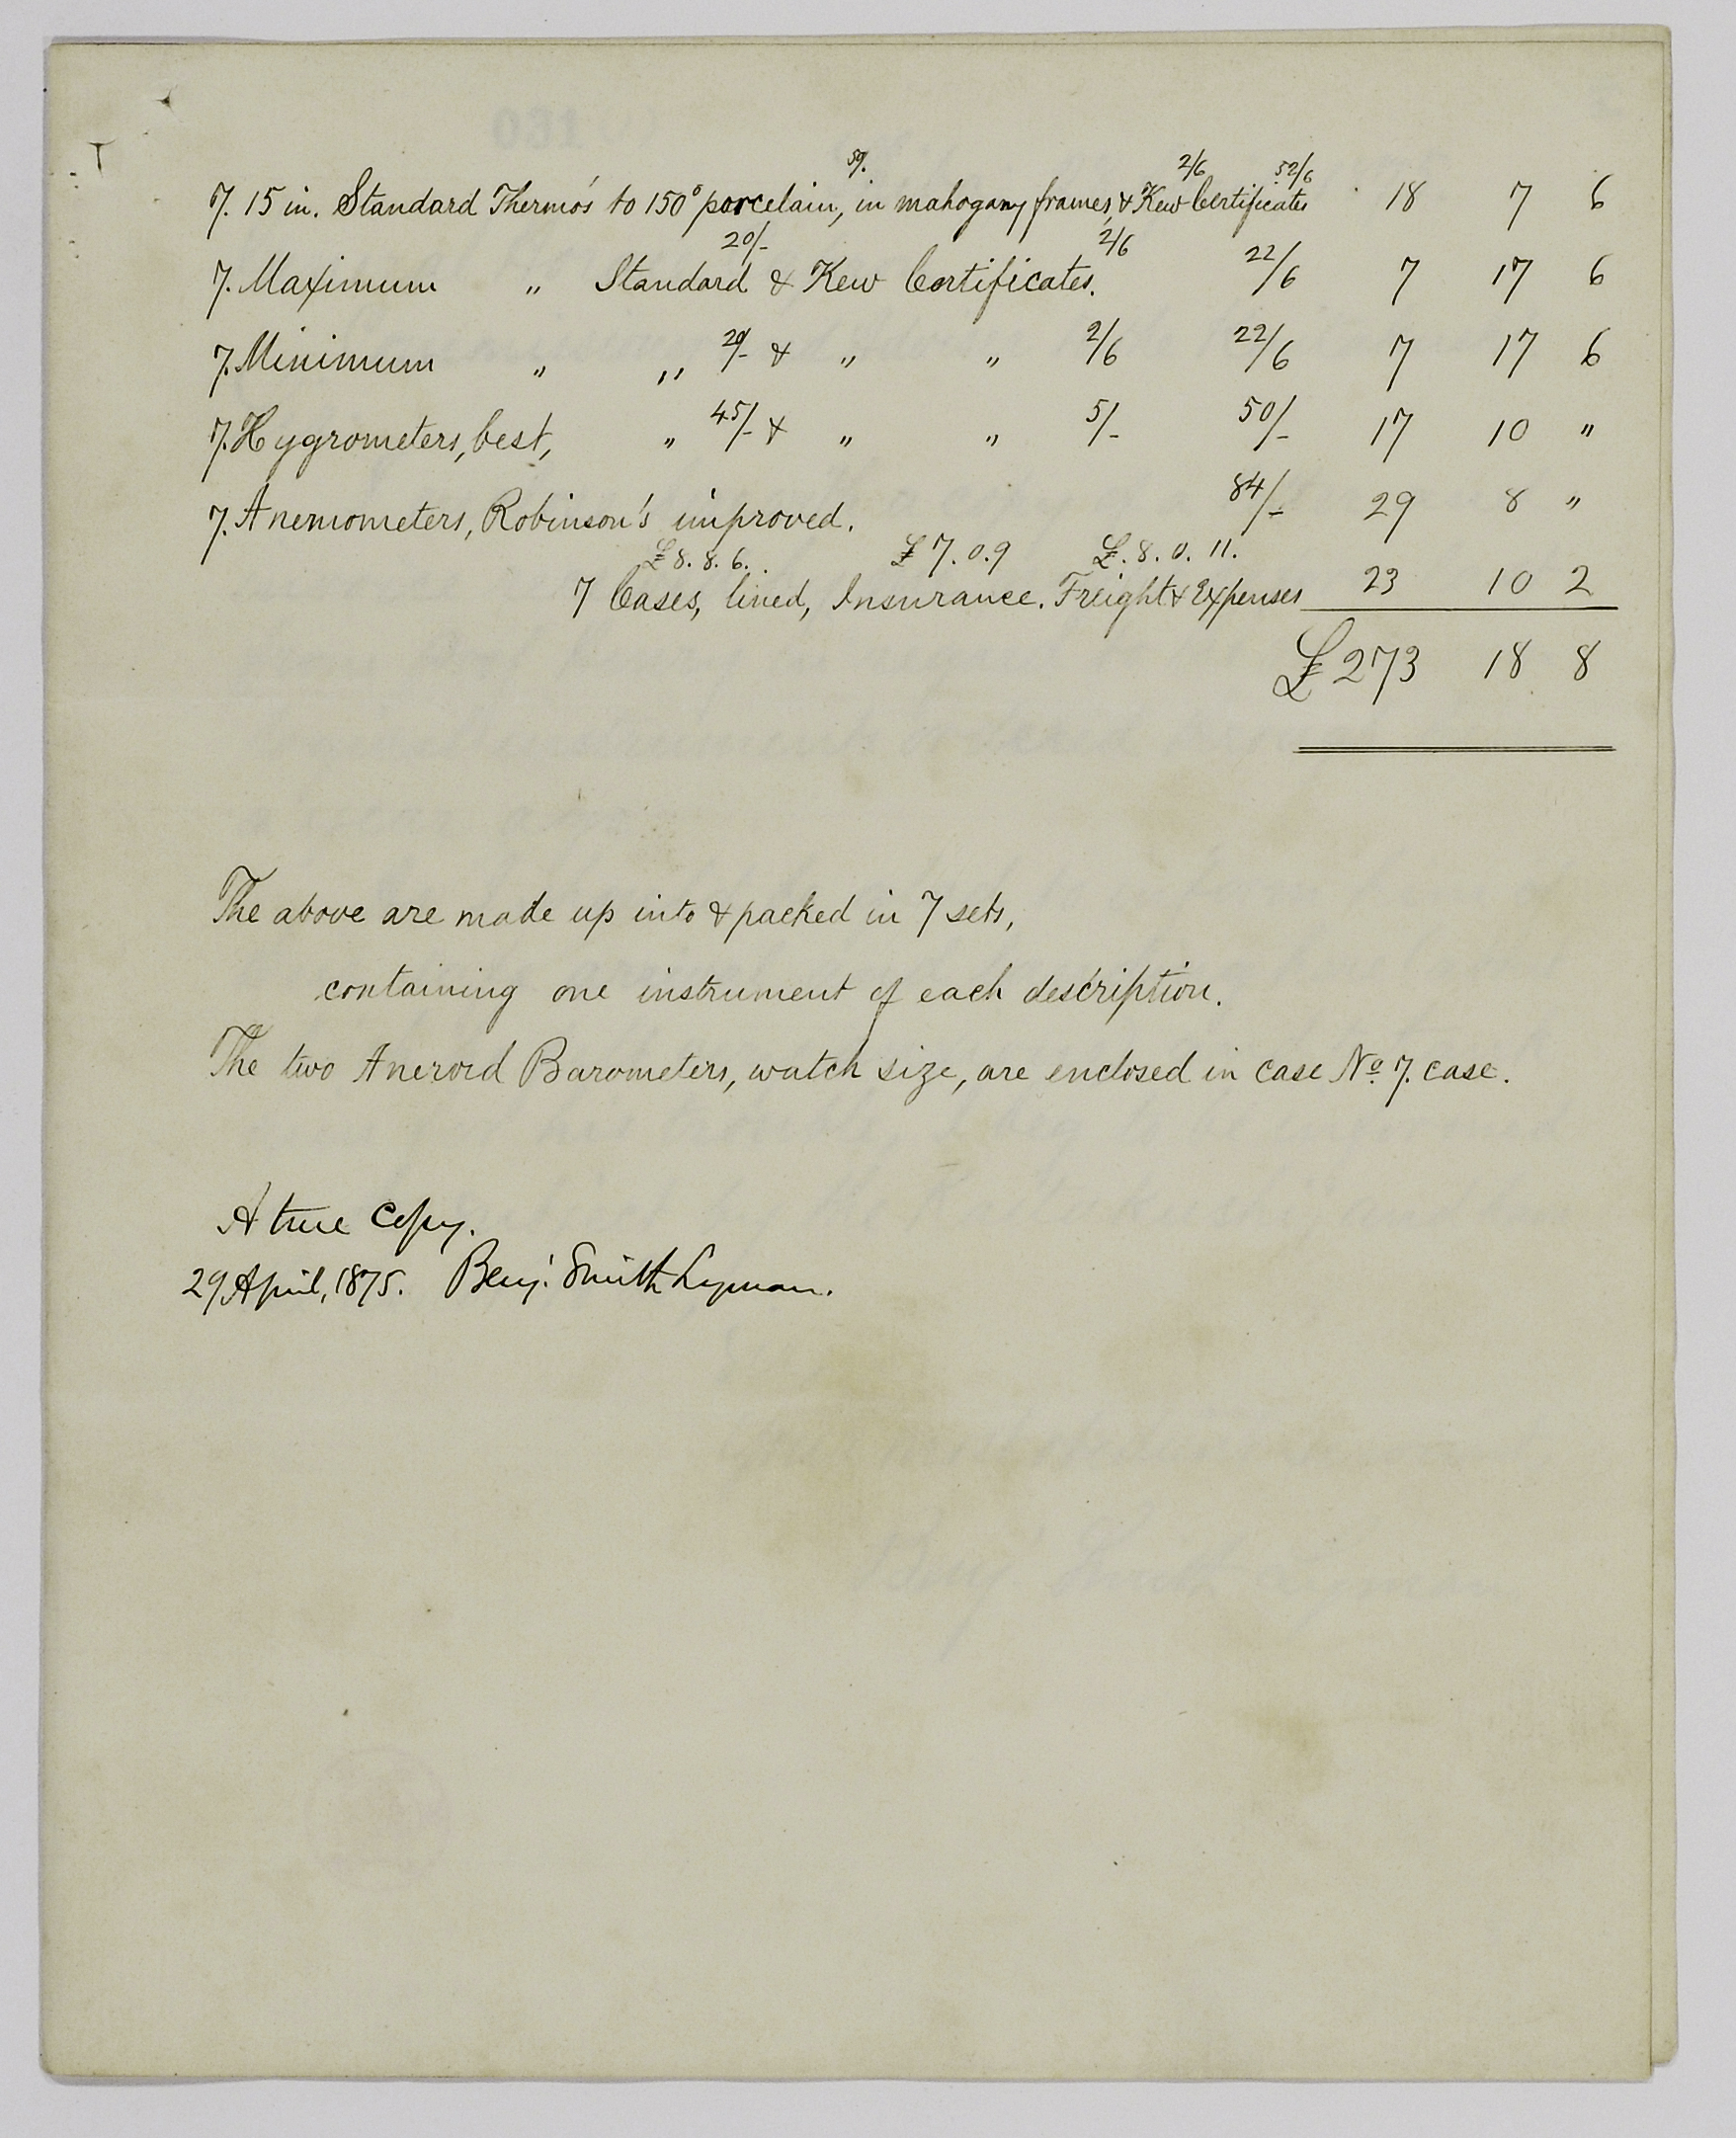 50/- 2/6 52/6
7. 15 in. Standard Thermo's to 150° porcelain, in mahogany frames, & Kew Certificates 18 7 6
20/- 2/6
7. Maximum " Standard & Kew Certificates. 22/6 7 17 6
7. Minimum " " 20/- & " " 2/6 22/6 7 17 6
7. Hygrometers, best, " 45/- & " " 5/- 50/- 17 10 "
7. Anemometers, Robinson's improved. 84/- 29 8 "
£8. 8. 6. £7. 0. 9 £. 8. 0. 11.
7 Cases, lined, Insurance. Freight & Expenses 23 10 2
£273 18 8
The above are made up into & packed in 7 sets,
containing one instrument of each description.
The two Aneroid Barometers, watch size, are enclosed in case No. 7. case.
A true copy.
29 April, 1875. Benj. Smith Lyman.